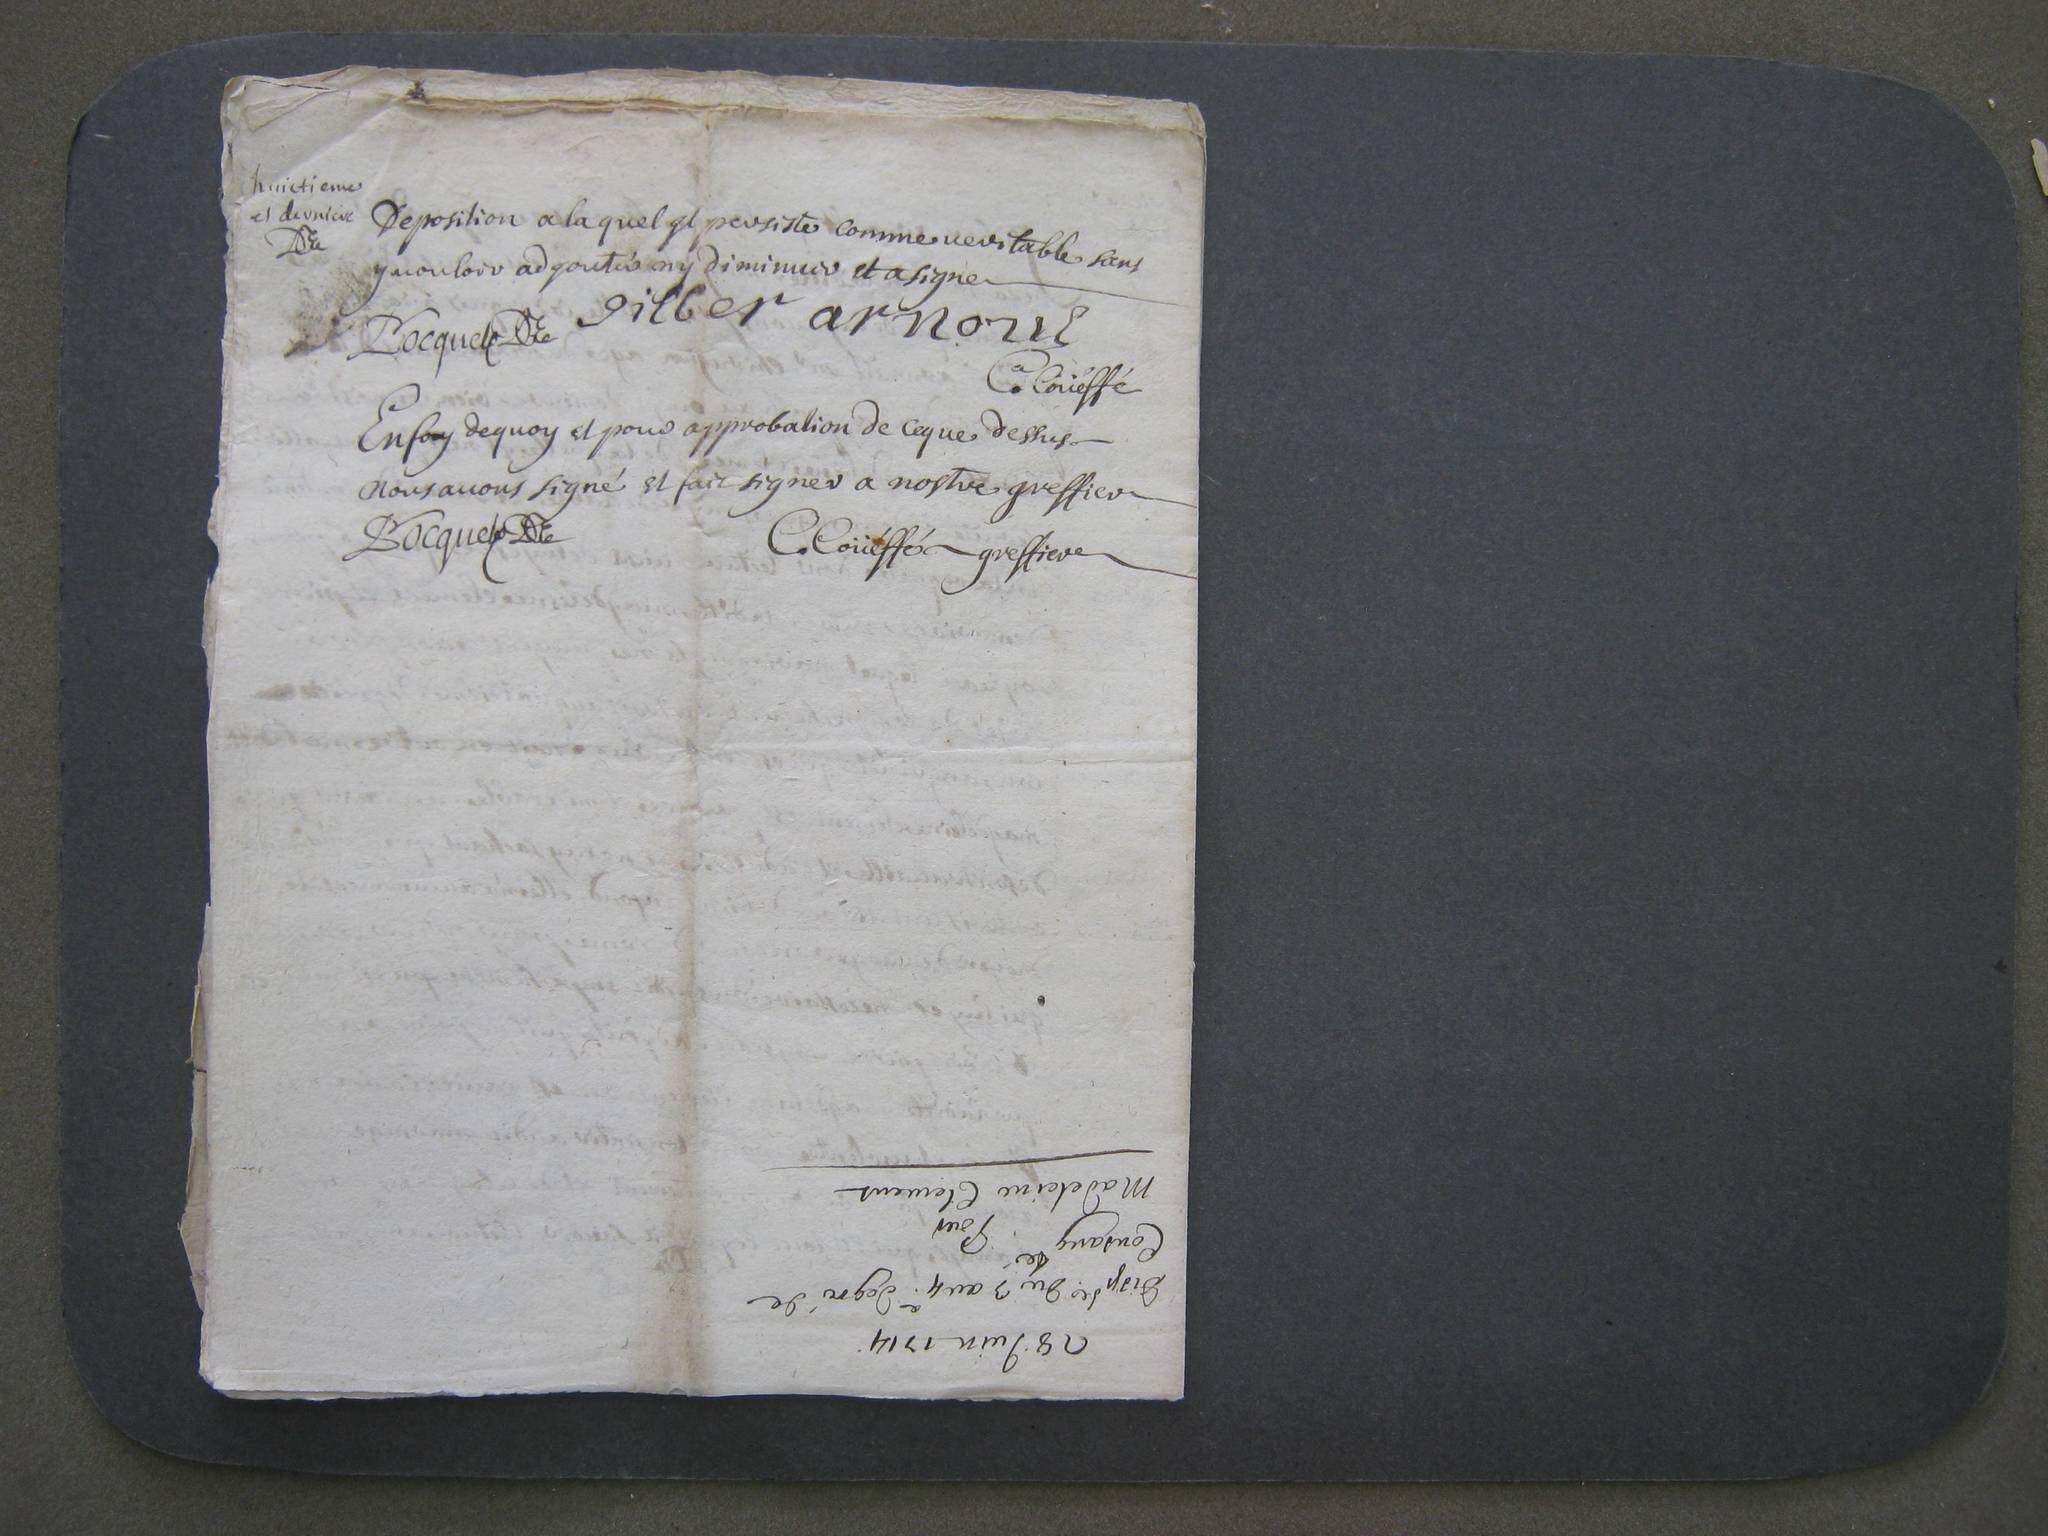 huictieme
et derniere
Deposition a la quel yl persiste comme veritable sans
y vouloir adjouter ny diminuer et a signe
gilber arnoul
Pocquet
C. Coüeffé
En foy de quoy et pour approbation de ce que dessus
nous avons signé et fait signer a nostre greffier
Pocquet
C. Coüeffé greffier
28 Juin 1714.
disp. du 3 au 4. degré de
Consang
Pour
Madeleine Clemens